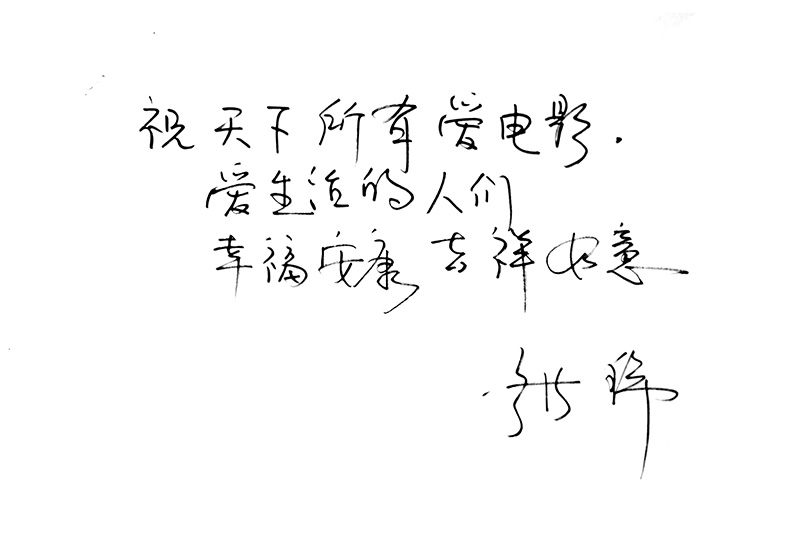 祝天下所有爱电影.
爱生活的人们
幸福安康 吉祥如意